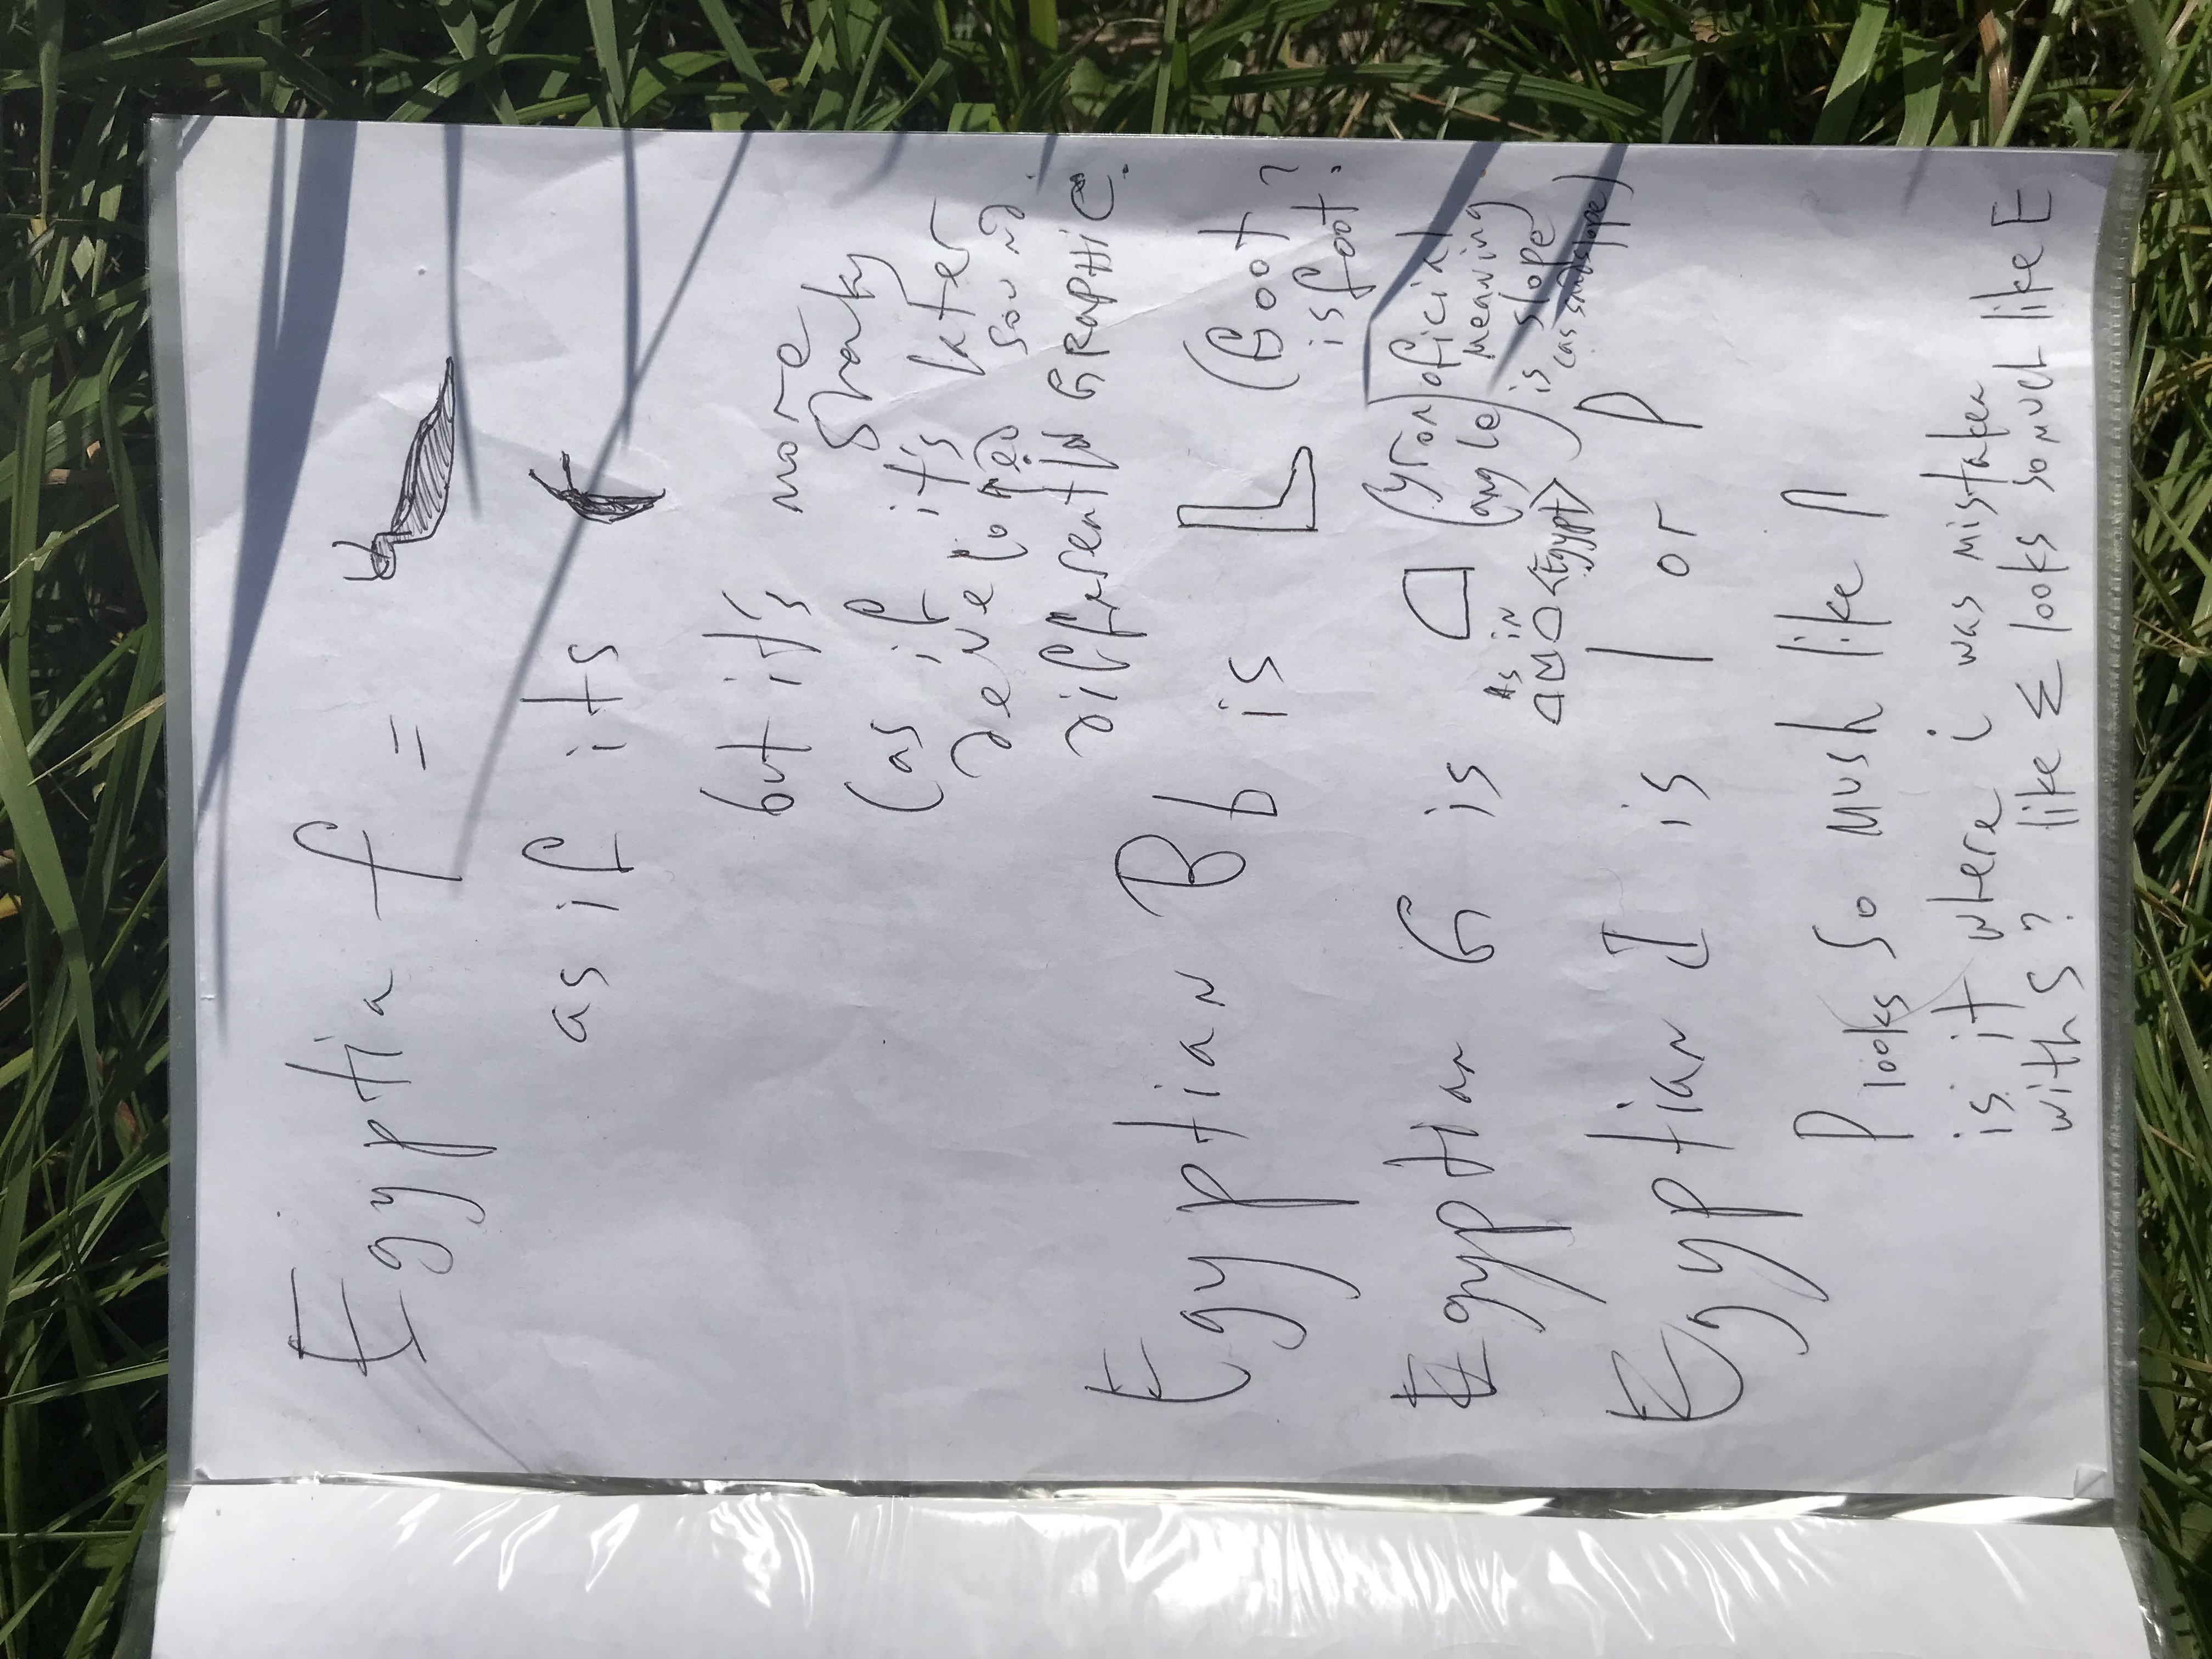 Egyptia f =
as if its
but it's more
shaky
(as if it's later
developed sound
different in GRAPHIC.
Egyptian B b is (Boot
is foot?
Egyptian G is (yron oficial
angle) meaning
As in is slope
<Egypt> (as sandslope)
Egyptian I is | or
looks so mush like
is it where i was mistaken
with S? like Σ looks so much like E